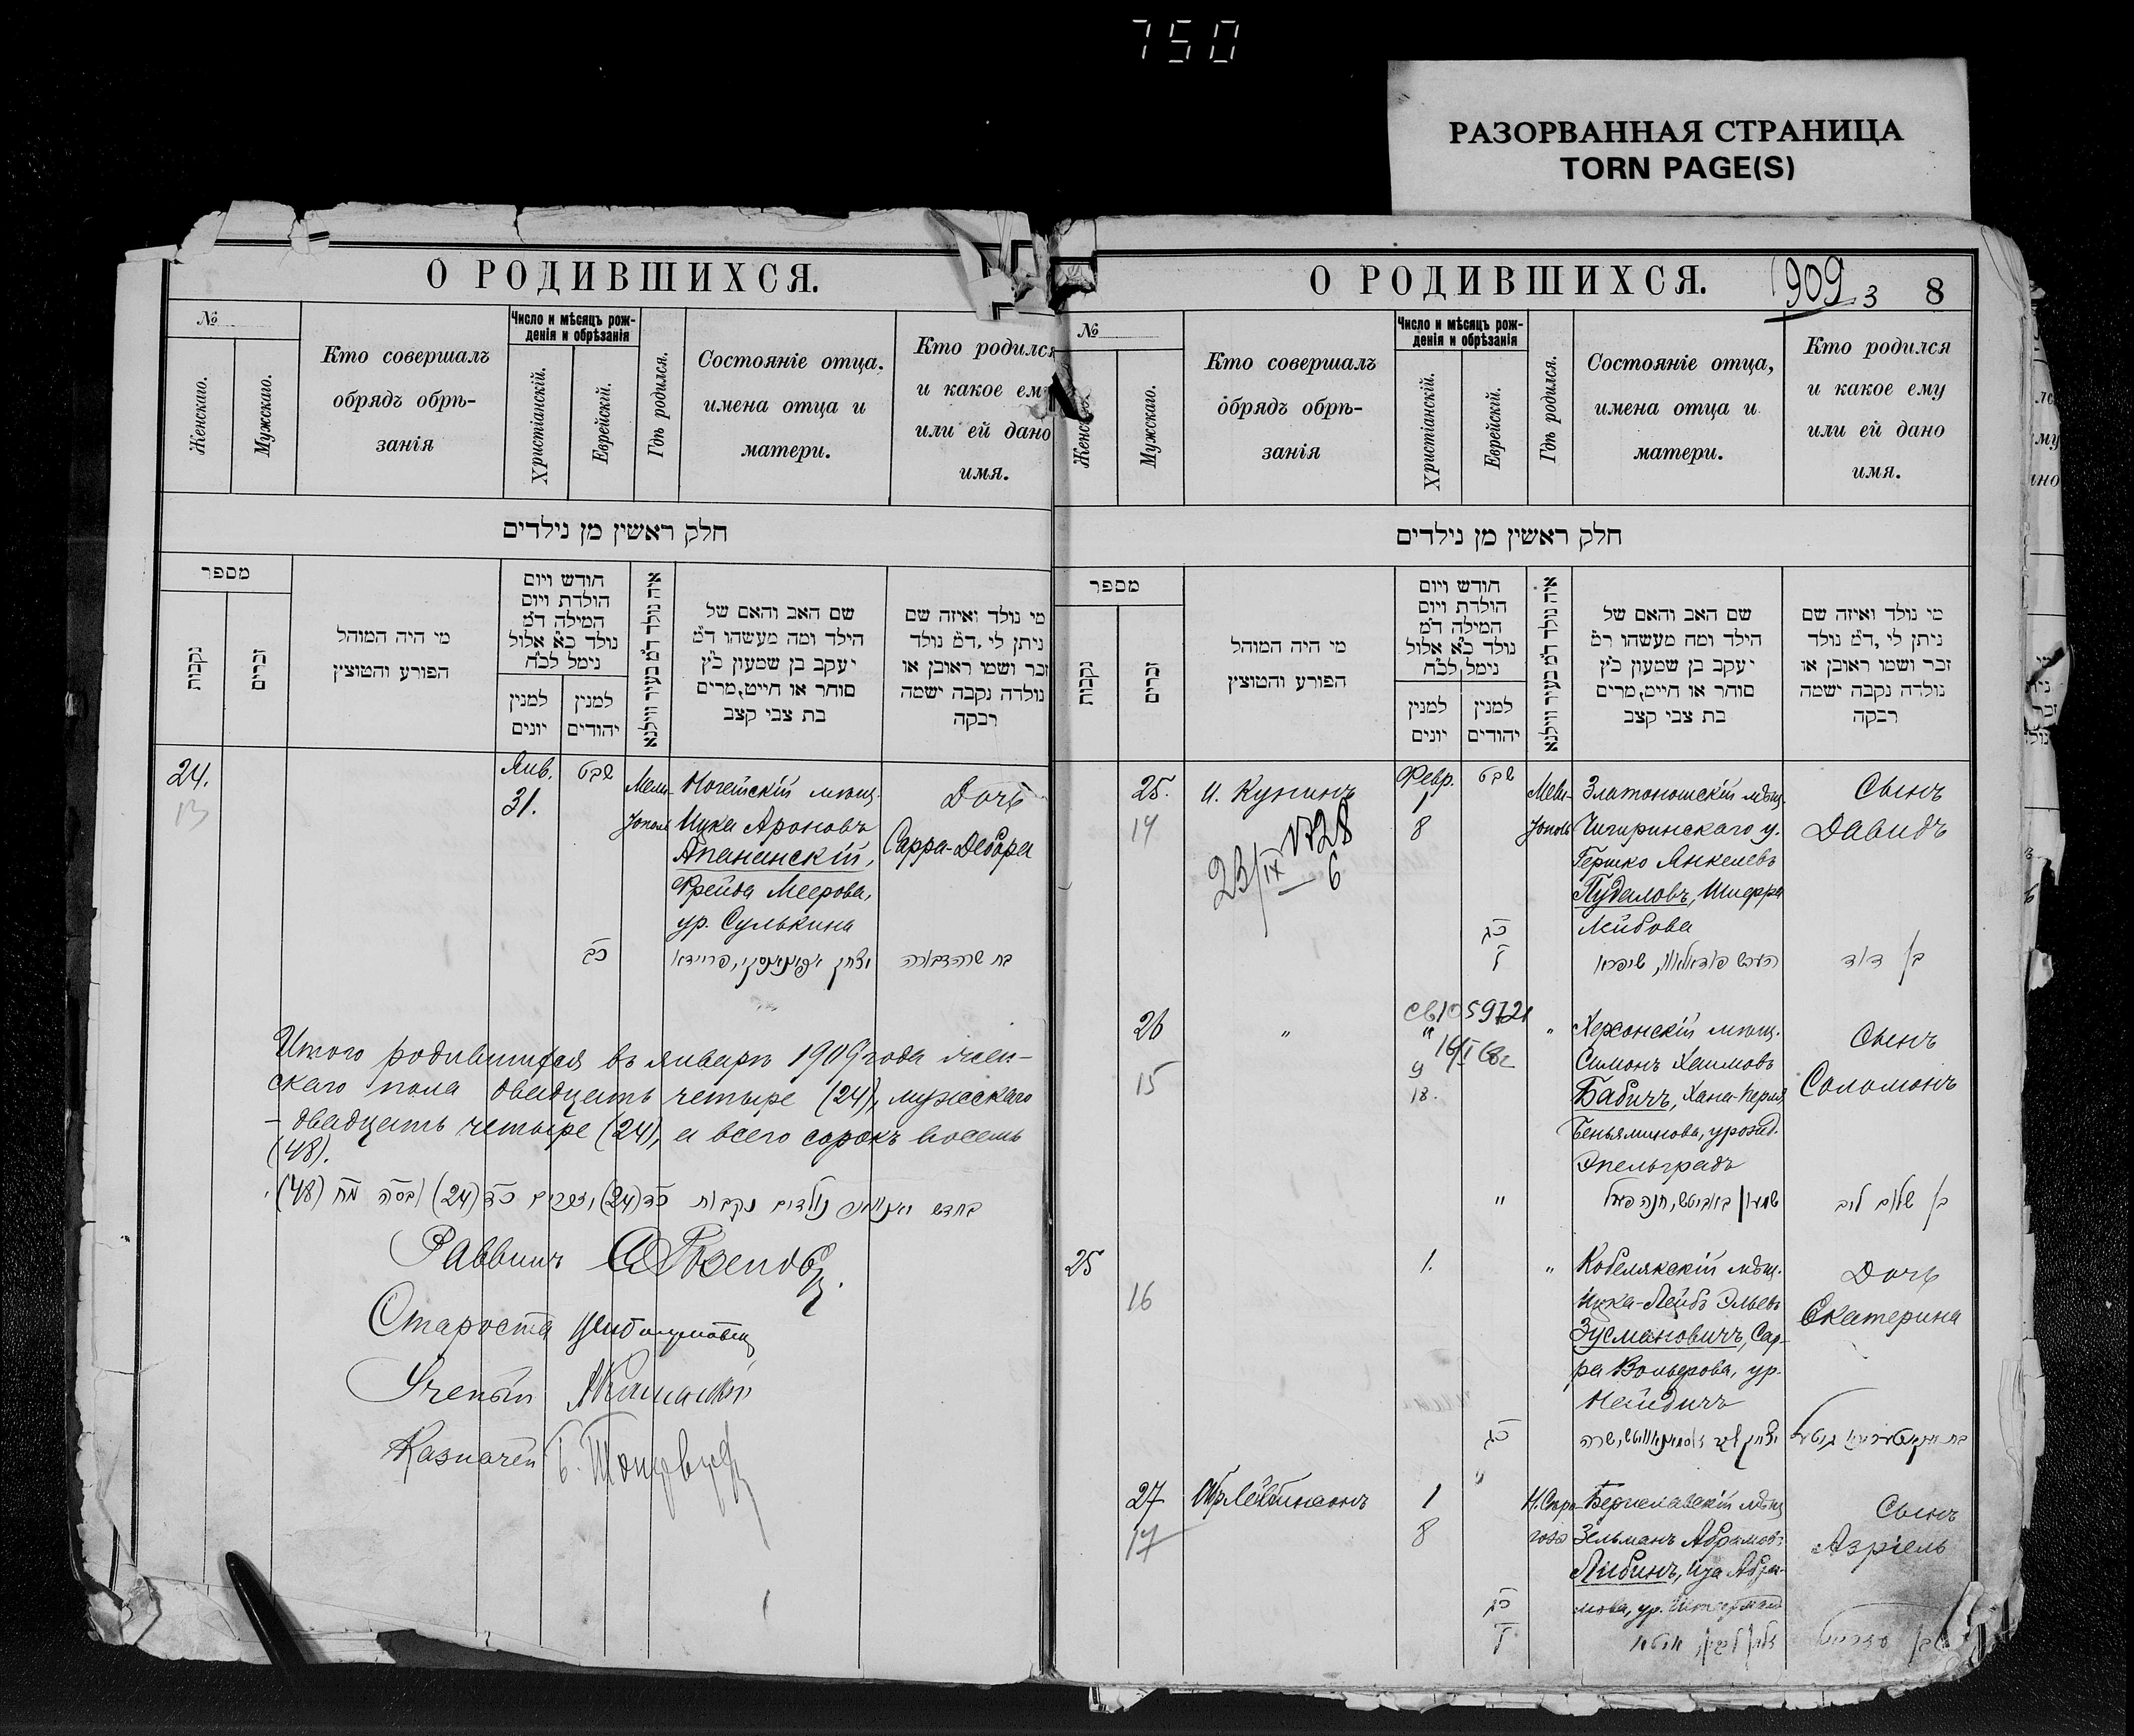 750
РАЗОРВАННАЯ СТРАНИЦА
TORN PAGE(S)
О РОДИВШИХСЯ.
№
Женскаго.
Мужскаго.
Кто совершалъ
обрядъ обрѣ-
занія
Число и мѣсяцъ рож-
денія и обрѣзанія
Христіанскій.
Еврейскій.
Гдѣ родился.
Состояніе отца.
имена отца и
матери.
Кто родился
и какое ему
или ей дано
имя.
חלק ראשין מן נילדים
מספר
נקבות
זכרים
מי היה המוהל
הפורע והטוצץ
חודש ויום
הולדת ויום
המילה ד״מ
נולד כ״א אלול
נימל לכ״ח
למנין
יונים
למנין
יהודים
איה נולד ד״מ בעיר ווילנא
שם האב והאם של
הילד ומה מעשהו ד״מ
יעקב בן שמעון כ״ץ
סוחר או חייט,מרים
בת צבי קצב
מי נולד ואיזה שם
ניתן לי ,ד״מ נולד
זכר ושמו ראובן או
נולדה נקבה ישמה
רבקה
24.
13
Янв.
31.
שבט
כב
Мели-
тополь
Ногейскій мѣщ.
Ицка Ароновъ
Апананскій,
Фрейда Меерова,
ур. Сулькина
Дочь
Сарра-Двора
בת שרה דבורה
Итого родившихся въ январѣ 1909 года жен-
скаго пола двадцать четыре (24), мужскаго
– двадцать четыре (24), а всего сорокъ восемь
(48).
בחדש יאנואר נולדים נקבות כד (24) וזכרים כד (24) ובסה מח (48).
Раввинъ
Староста
Ученый
Казначей
О РОДИВШИХСЯ.
1909
3
8
№
Женскаго.
Мужскаго.
Кто совершалъ
обрядъ обрѣ-
занія
Число и мѣсяцъ рож-
денія и обрѣзанія
Христіанскій.
Еврейскій.
Гдѣ родился.
Состояніе отца,
имена отца и
матери.
Кто родился
и какое ему
или ей дано
имя.
חלק ראשין מן נילדים
מספר
נקבות
זכרים
מי היה המוהל
הפורע והטוצץ
חודש ויום
הולדת ויום
המילה ד״מ
נולד כ״א אלול
נימל לכ״ח
למנין
יונים
למנין
יהודים
איה נולד ד״מ בעיר ווילנא
שם האב והאם של
הילד ומה מעשהו ד״מ
יעקב בן שמעון כ״ץ
סוחר או חייט,מרים
בת צבי קצב
מי נולד ואיזה שם
ניתן לי ,ד״מ נולד
זכר ושמו ראובן או
נולדה נקבה ישמה
רבקה
25.
14
И. Кунинъ
23/IX
6
Февр.
1
8
שבט
כג
ל
Мели-
тополь
Златоношскій мѣщ.
Чигиринскаго у.
Гершко Янкелевъ
Пудаловъ, Шифра
Лейбова
Сынъ
Давидъ
בן דוד
26
15
"
"
9
18.
"
"
Херсонскій мѣщ.
Симонъ Хаимовъ
Бабичъ, Хана-Перля
Беньяминова, урожд.
Эпельградъ
שמעון באביטש, חנה פערל
Сынъ
Соломонъ
בן שלום ליב
25
16
1.
כג
"
Кобелякскій мѣщ.
Ицка-Лейбъ Эльевъ
Зусмановичъ, Сар-
ра Вольфова, ур.
Найдичъ
Дочь
Екатерина
27
17
Лейбинзонъ
1
8
"
כג
ל
Бериславскій мѣщ.
Зельманъ Абрамовъ
Либинъ, Ида Абра-
мова, ур.
Сынъ
Азріель